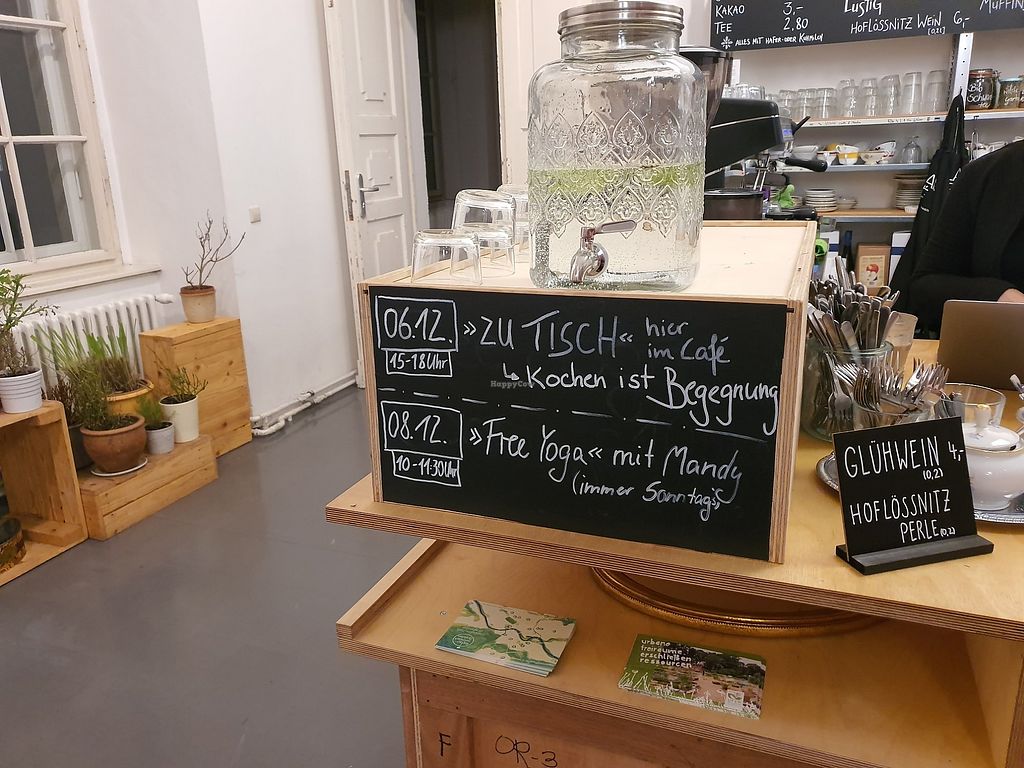 KAKAO 3,-
TEE 2,80
ALLES MIT HAFER- ODER KUHMILCH
LUSTIG
HOFLÖSSNITZ WEIN 6,-
(0,2l)
MUFFIN
06.12.
15-18Uhr
»ZU TISCH« hier
im Café
↳ Kochen ist Begegnung
08.12.
10-11:30Uhr
»Free Yoga« mit Mandy
(immer Sonntags)
GLÜHWEIN 4,-
(0,2)
HOFLÖSSNITZ
PERLE (0,2)
urbane
freiräume
erschließen
ressourcen
F OR-3
HappyCow